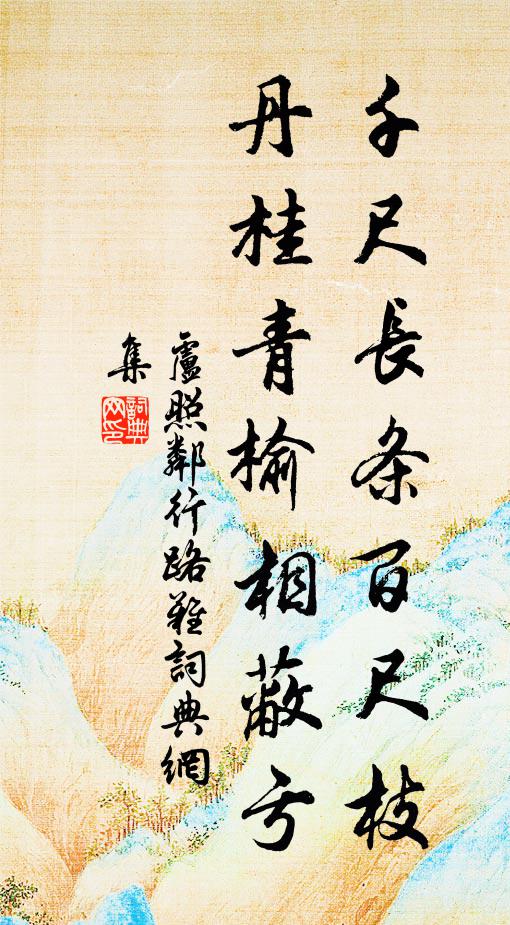 千尺長条百尺枝
丹桂青榆相蔽亏
盧照鄰行路難詞典網
集
詞典
网印